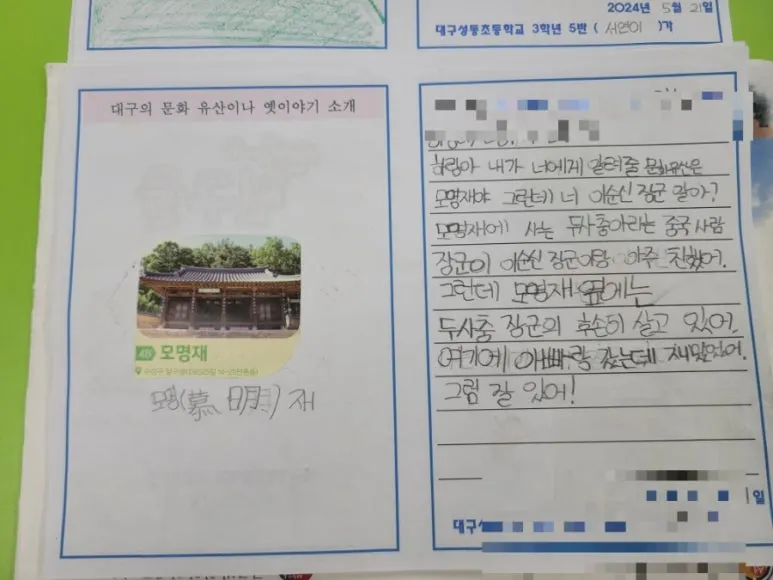 2024년 5월 21일
대구성동초등학교 3학년 5반 ( 서연이 )가
대구의 문화 유산이나 옛이야기 소개
모명재
모명(慕明)재
하랑아 내가 너에게 알려줄 문화유산은
모명재야 그런데 너 이순신 장군 알아?
모명재에 사는 두사충이라는 중국 사람
장군이 이순신 장군이랑 아주 친했어.
그런데 모명재 옆에는
두사충 장군의 후손이 살고 있어.
여기에 아빠랑 갔는데 재밌었어.
그럼 잘 있어!
일
대구